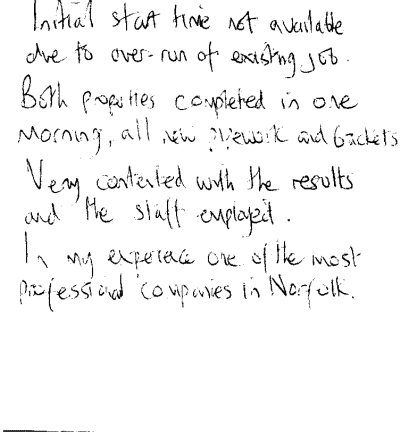 Initial start time not available
due to over-run of existing job.
Both properties completed in one
morning, all new pipework and brackets
Very contented with the results
and the staff employed.
In my experience one of the most
professional companies in Norfolk.